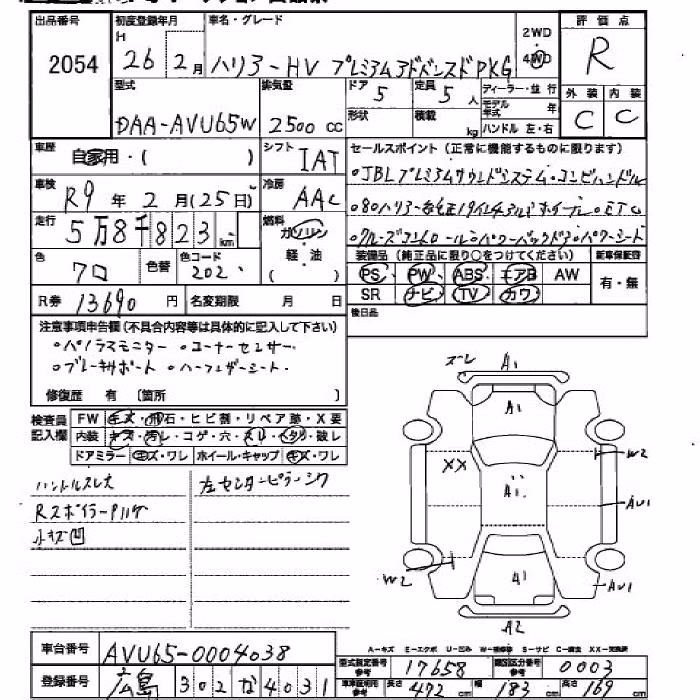 出品番号 初度登録年月 車名・グレード 2WD 評価点
2054 H 26 2月 ハリアーHV プレミアムアドバンスドPKG 4WD R
型式 排気量 ドア 5 定員 5人 ディーラー・並行 外装 内装
DAA-AVU65W 2500cc 形状 積載 kg モデル年式 年 ハンドル 左・右 C C
車歴 自家用・( ) シフト IAT セールスポイント (正常に機能するものに限ります)
車検 R9年2月(25日) 冷房 AAC ・JBLプレミアムサウンドシステム・コンビハンドル
走行 5万8千823km 燃料 ガソリン・軽油・( )
・クルーズコントロール・パワーバックドア・パワーシート
色 クロ 色替 色コード 202 装備品 (純正品に限り○をつけてください) 新車保証書
PS PW ABS エアB AW 有・無
R券 13690円 名変期限 月 日 SR ナビ TV カワ
後日品
注意事項申告欄(不具合内容等は具体的に記入して下さい)
・パノラマモニター ・コーナーセンサー
・ブレーキサポート ・ハーフレザーシート
修復歴 有 [箇所 ]
検査員記入欄 FW キズ・飛石・ヒビ割・リペア跡・X要
内装 キズ・汚レ・コゲ・穴・スレ・ヘタリ・破レ
ドアミラー キズ・ワレ ホイール・キャップ キズ・ワレ
ハンドルスレ大 左センターピラーシワ
小キズ凹
ズレ A1
A1
XX W2
A1
AU1
W2 A1 AU1
A2
A-キズ E-エクボ U-凹ミ W-補修跡 S-サビ C-腐食 XX-交換済
車台番号 AVU65-0004038
型式指定番号 参考 17658 類別区分番号 参考 0003
登録番号 広島 302 な 4031
車車証明用 参考 長さ 472cm 幅 183cm 高さ 169cm